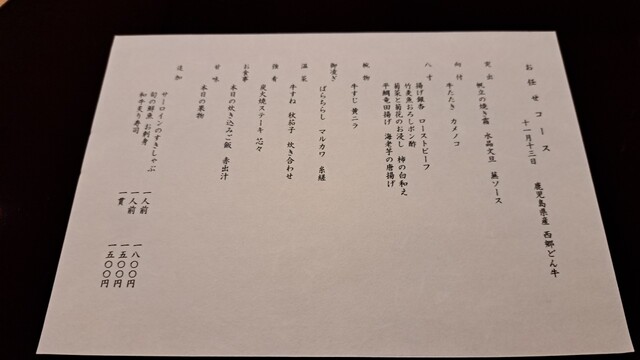 お任せコース
十一月十三日　鹿児島県産　西郷どん牛
突出　帆立の焼き霜　水晶文旦　蕪ソース
向付　牛たたき　カメノコ
八寸　揚げ銀杏　ローストビーフ
竹麦魚おろしポン酢
菊菜と菊花のお浸し　柿の白和え
平鯛竜田揚げ　海老芋の唐揚げ
椀物　牛すじ　黄ニラ
御凌ぎ　ばらちらし　マルカワ　糸縒
温菜　牛すね　枚茄子　炊き合わせ
強肴　炭火焼ステーキ　芯々
お食事　本日の炊き込みご飯　赤出汁
甘味　本日の果物
追加　サーロインのすきしゃぶ　一人前　一八〇〇円
旬の鮮魚　お刺身　一人前　一五〇〇円
和牛炙り寿司　一貫　一五〇〇円